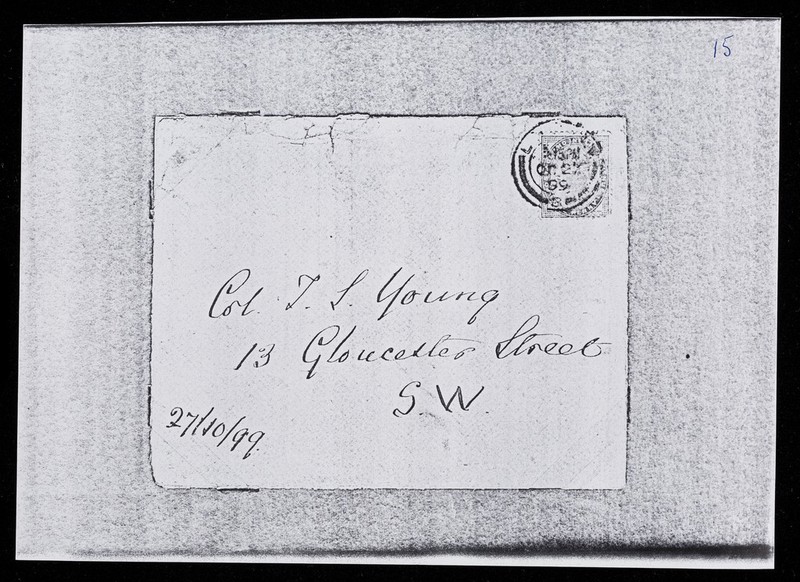 15
OC 27
99
Col. T. S. Young
13 Gloucester Street
S. W.
27/10/99